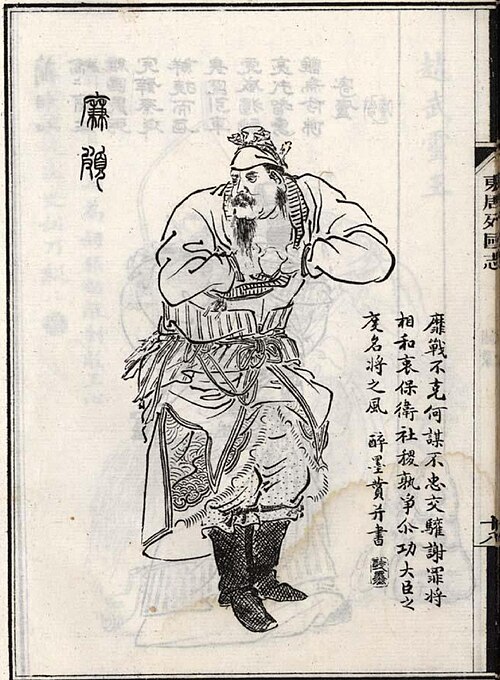 廉頗
東周列國志
靡戰不克何謀不忠交驩謝罪將
相和衷保衛社稷孰爭尒功大臣之
度名將之風 醉墨贊并書